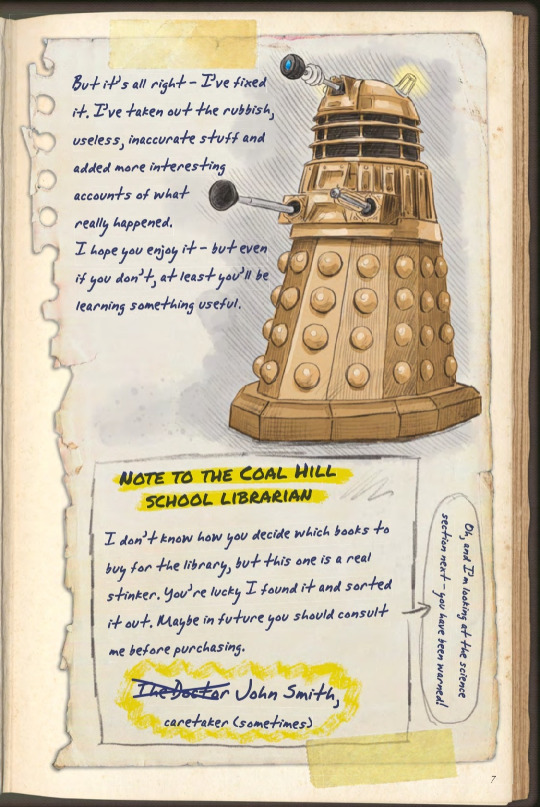 But it's all right – I've fixed
it. I've taken out the rubbish,
useless, inaccurate stuff and
added more interesting
accounts of what
really happened.
I hope you enjoy it – but even
if you don't, at least you'll be
learning something useful.
NOTE TO THE COAL HILL
SCHOOL LIBRARIAN
I don't know how you decide which books to
buy for the library, but this one is a real
stinker. You're lucky I found it and sorted
it out. Maybe in future you should consult
me before purchasing.
The Doctor John Smith,
caretaker (sometimes)
Oh, and I'm looking at the science
section next – you have been warned!
7